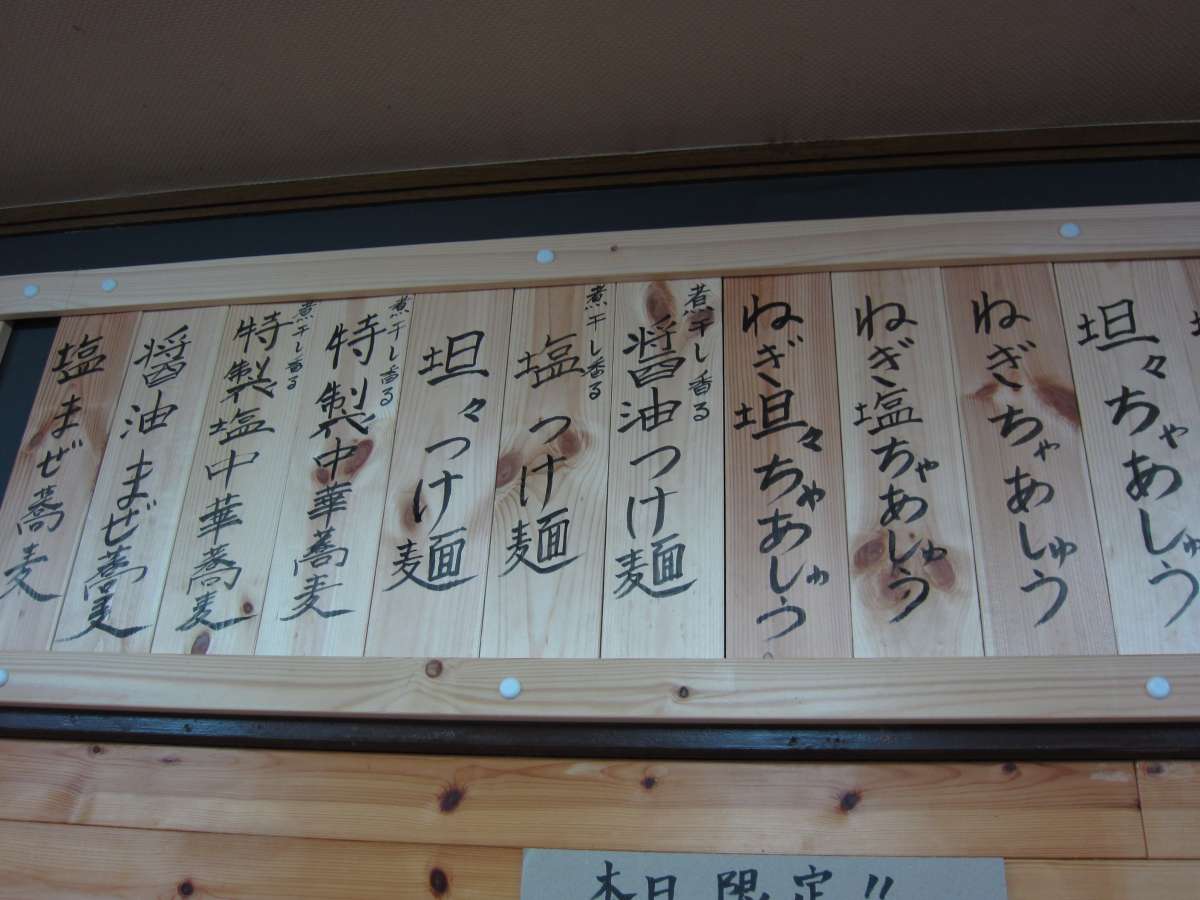 坦々ちゃあしゅう
ねぎちゃあしゅう
ねぎ塩ちゃあしゅう
ねぎ坦々ちゃあしゅう
煮干し香る
醤油つけ麺
煮干し香る
塩つけ麺
坦々つけ麺
煮干し香る
特製中華蕎麦
煮干し香る
特製塩中華蕎麦
醤油まぜ蕎麦
塩まぜ蕎麦
本日限定!!